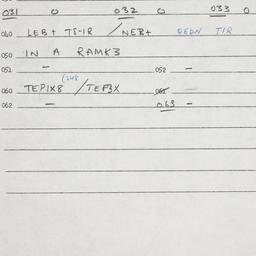 031 0 032 0 033 0
040 LEB+ T8-1R / NEB+ QEDN T1R
050 IN A RAMK3
051 - 052 -
(248
060 TEP1X8 / TEP3X 061 -
062 - 063 -